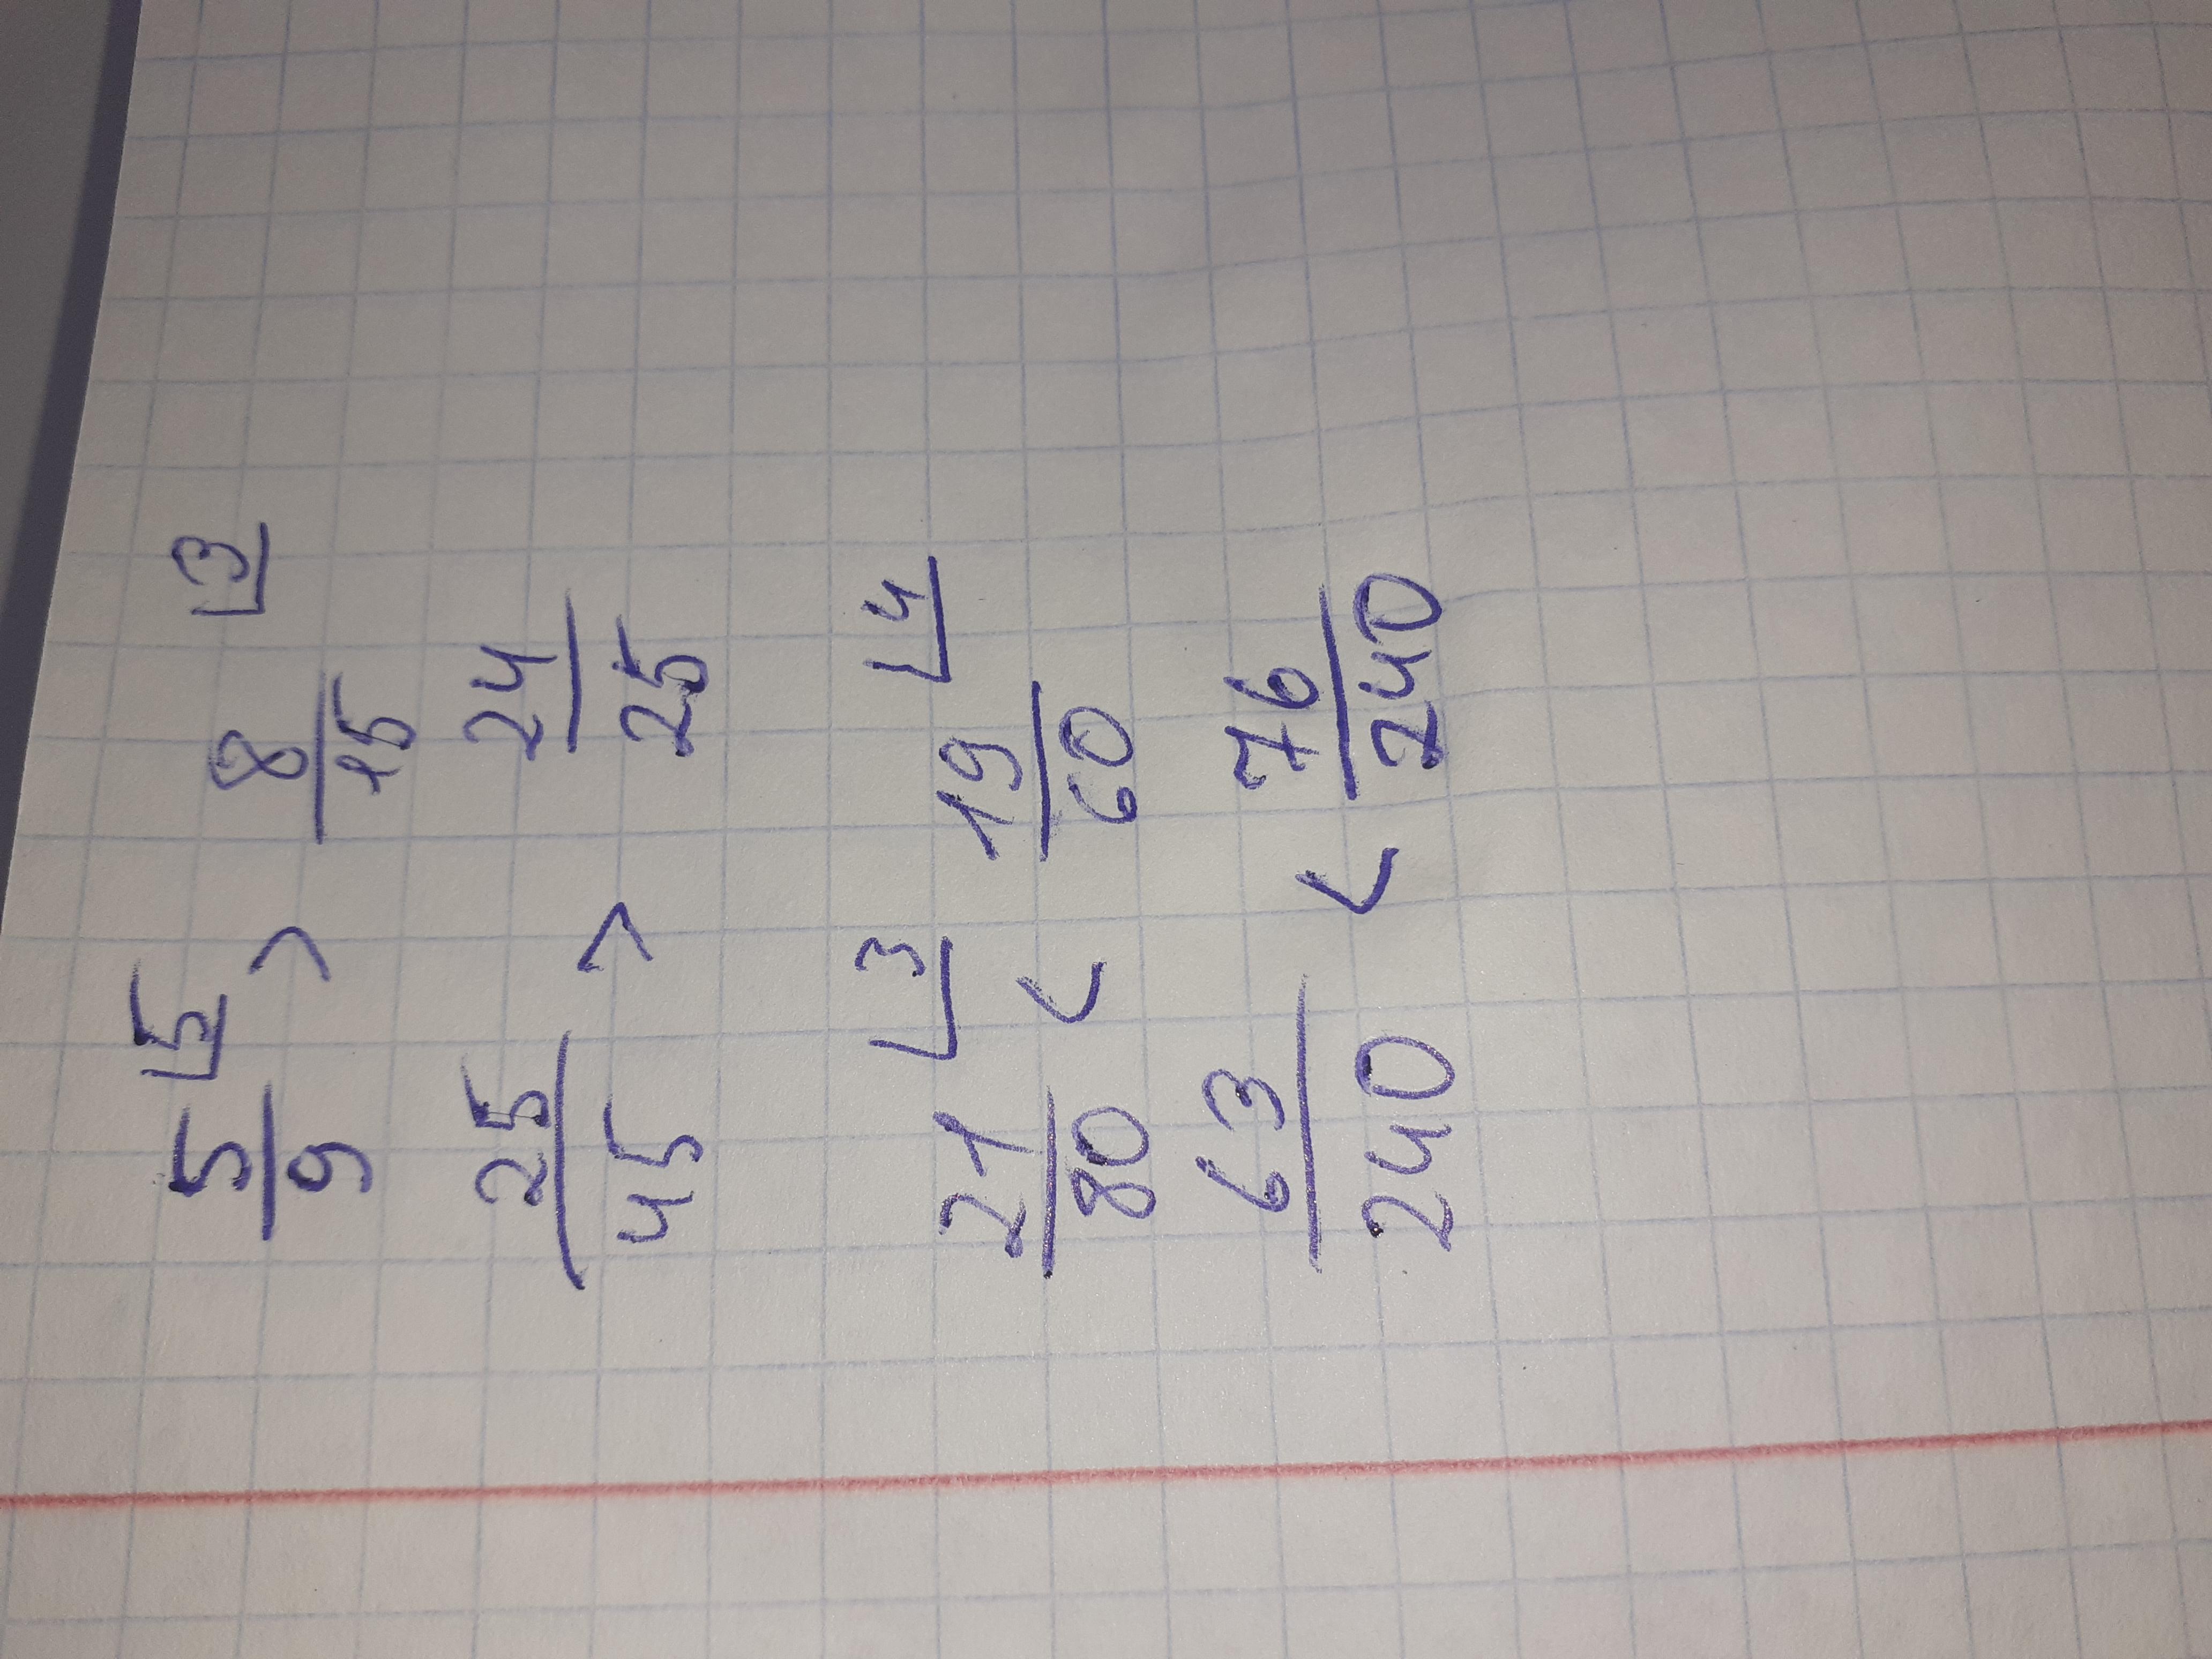 5/9 ⌊5 > 8/15 ⌊3
25/45 > 24/25
21/80 ⌊3 < 19/60 ⌊4
63/240 < 76/240